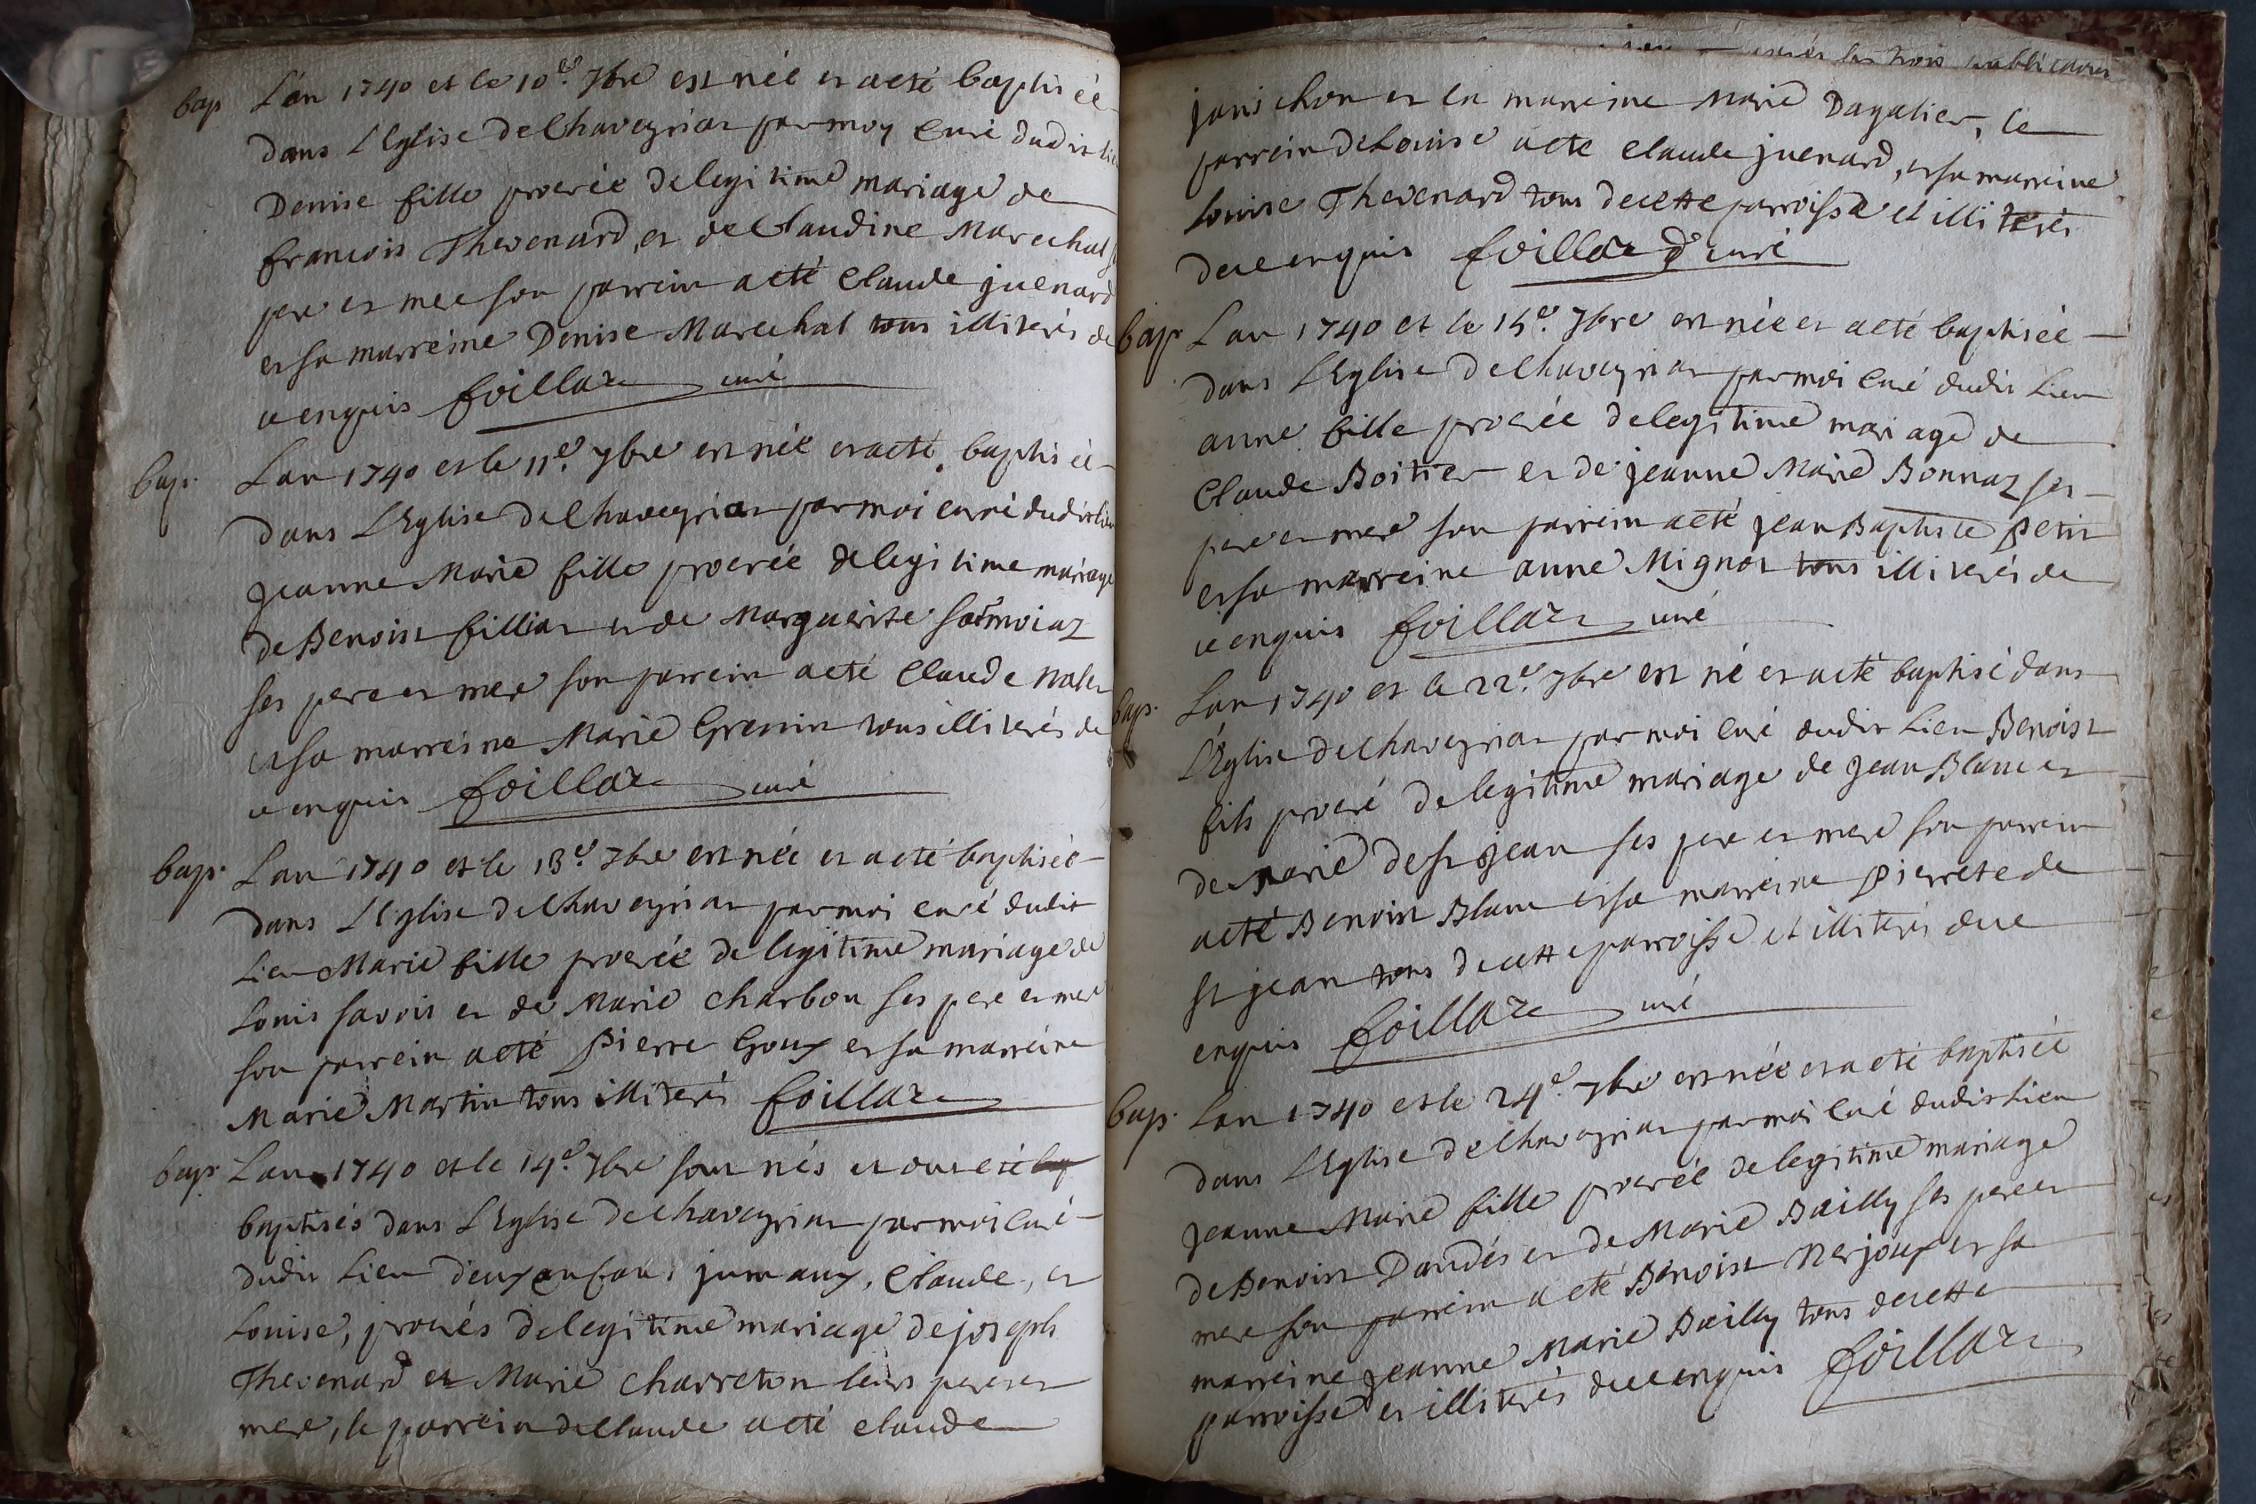 bap L'an 1740 et le 10e. 7bre est née et a eté baptisée
dans L'Eglise de Chaveyriat par moy Curé dudit lieu
Denise fille procréée de legitime mariage de
francois Thevenard, et de Claudine Marechal ses
pere et mere son parrein a eté Claude juenard
et sa marreine Denise Marechal tous illiterés de
ce enquis foillard curé
bap. L'an 1740 et le 11e. 7bre est née et a eté baptisée
dans L'Eglise de Chaveyriat par moi curé dudit lieu
jeanne Marie fille procréée de legitime mariage
de Benoist fillion et de Marguerite
ses pere et mere son parrein a eté Claude
et sa marreine Marie tous illiterés de
ce enquis foillard curé
bap. L'an 1740 et le 13e. 7bre est née et a eté baptisée
dans L'Eglise de Chaveyriat par moi curé dudit
Lieu Marie fille procréée de legitime mariage de
Louis savoit et de Marie Charbon ses pere et mere
son parrein a eté Pierre Goux et sa marreine
Marie Martin tous illiterés foillard
bap. L'an 1740 et le 14e. 7bre sont nés et ont eté bap
baptisés dans L'Eglise de Chaveyriat par moi Curé
dudit Lieu deux enfans jumaux, Claude, et
Louise, procréés de legitime mariage de joseph
Thevenard et Marie Charreton leurs pere et
mere, le parrein de Claude a eté Claude
janichon et la marreine Marie Dagalier, le
parrein de Louise a eté Claude juenard, et sa marreine
Louise Thevenard tous de cette parroisse et illiterés
de ce enquis foillard curé
bap. L'an 1740 et le 15e. 7bre est née et a eté baptisée
dans L'Eglise de Chaveyriat par moi Curé dudit Lieu
anne fille procréée de legitime mariage de
Claude Boitier et de jeanne Marie Bonnaz ses
pere et mere son parrein a eté jean Baptiste Petit
et sa marreine anne Mignot tous illiterés de
ce enquis foillard curé
bap. L'an 1740 et le 22e. 7bre est né et a eté baptisé dans
L'Eglise de Chaveyriat par moi Curé dudit Lieu Benoist
fils procréé de legitime mariage de jean Blanc et
de Marie de st jean ses pere et mere son parrein
a eté Benoist Blanc et sa marreine Pierrete de
st jean tous de cette parroisse et illiterés de ce
enquis foillard curé
bap. L'an 1740 et le 24e. 7bre est née et a eté baptisée
dans L'Eglise de Chaveyriat par moi Curé dudit Lieu
jeanne Marie fille procréée de legitime mariage
de Benoist Dandés et de Marie Bailly ses pere et
mere son parrein a eté Benoist Nerjoux et sa
marreine jeanne Marie Bailly tous de cette
parroisse et illiterés de ce enquis foillard